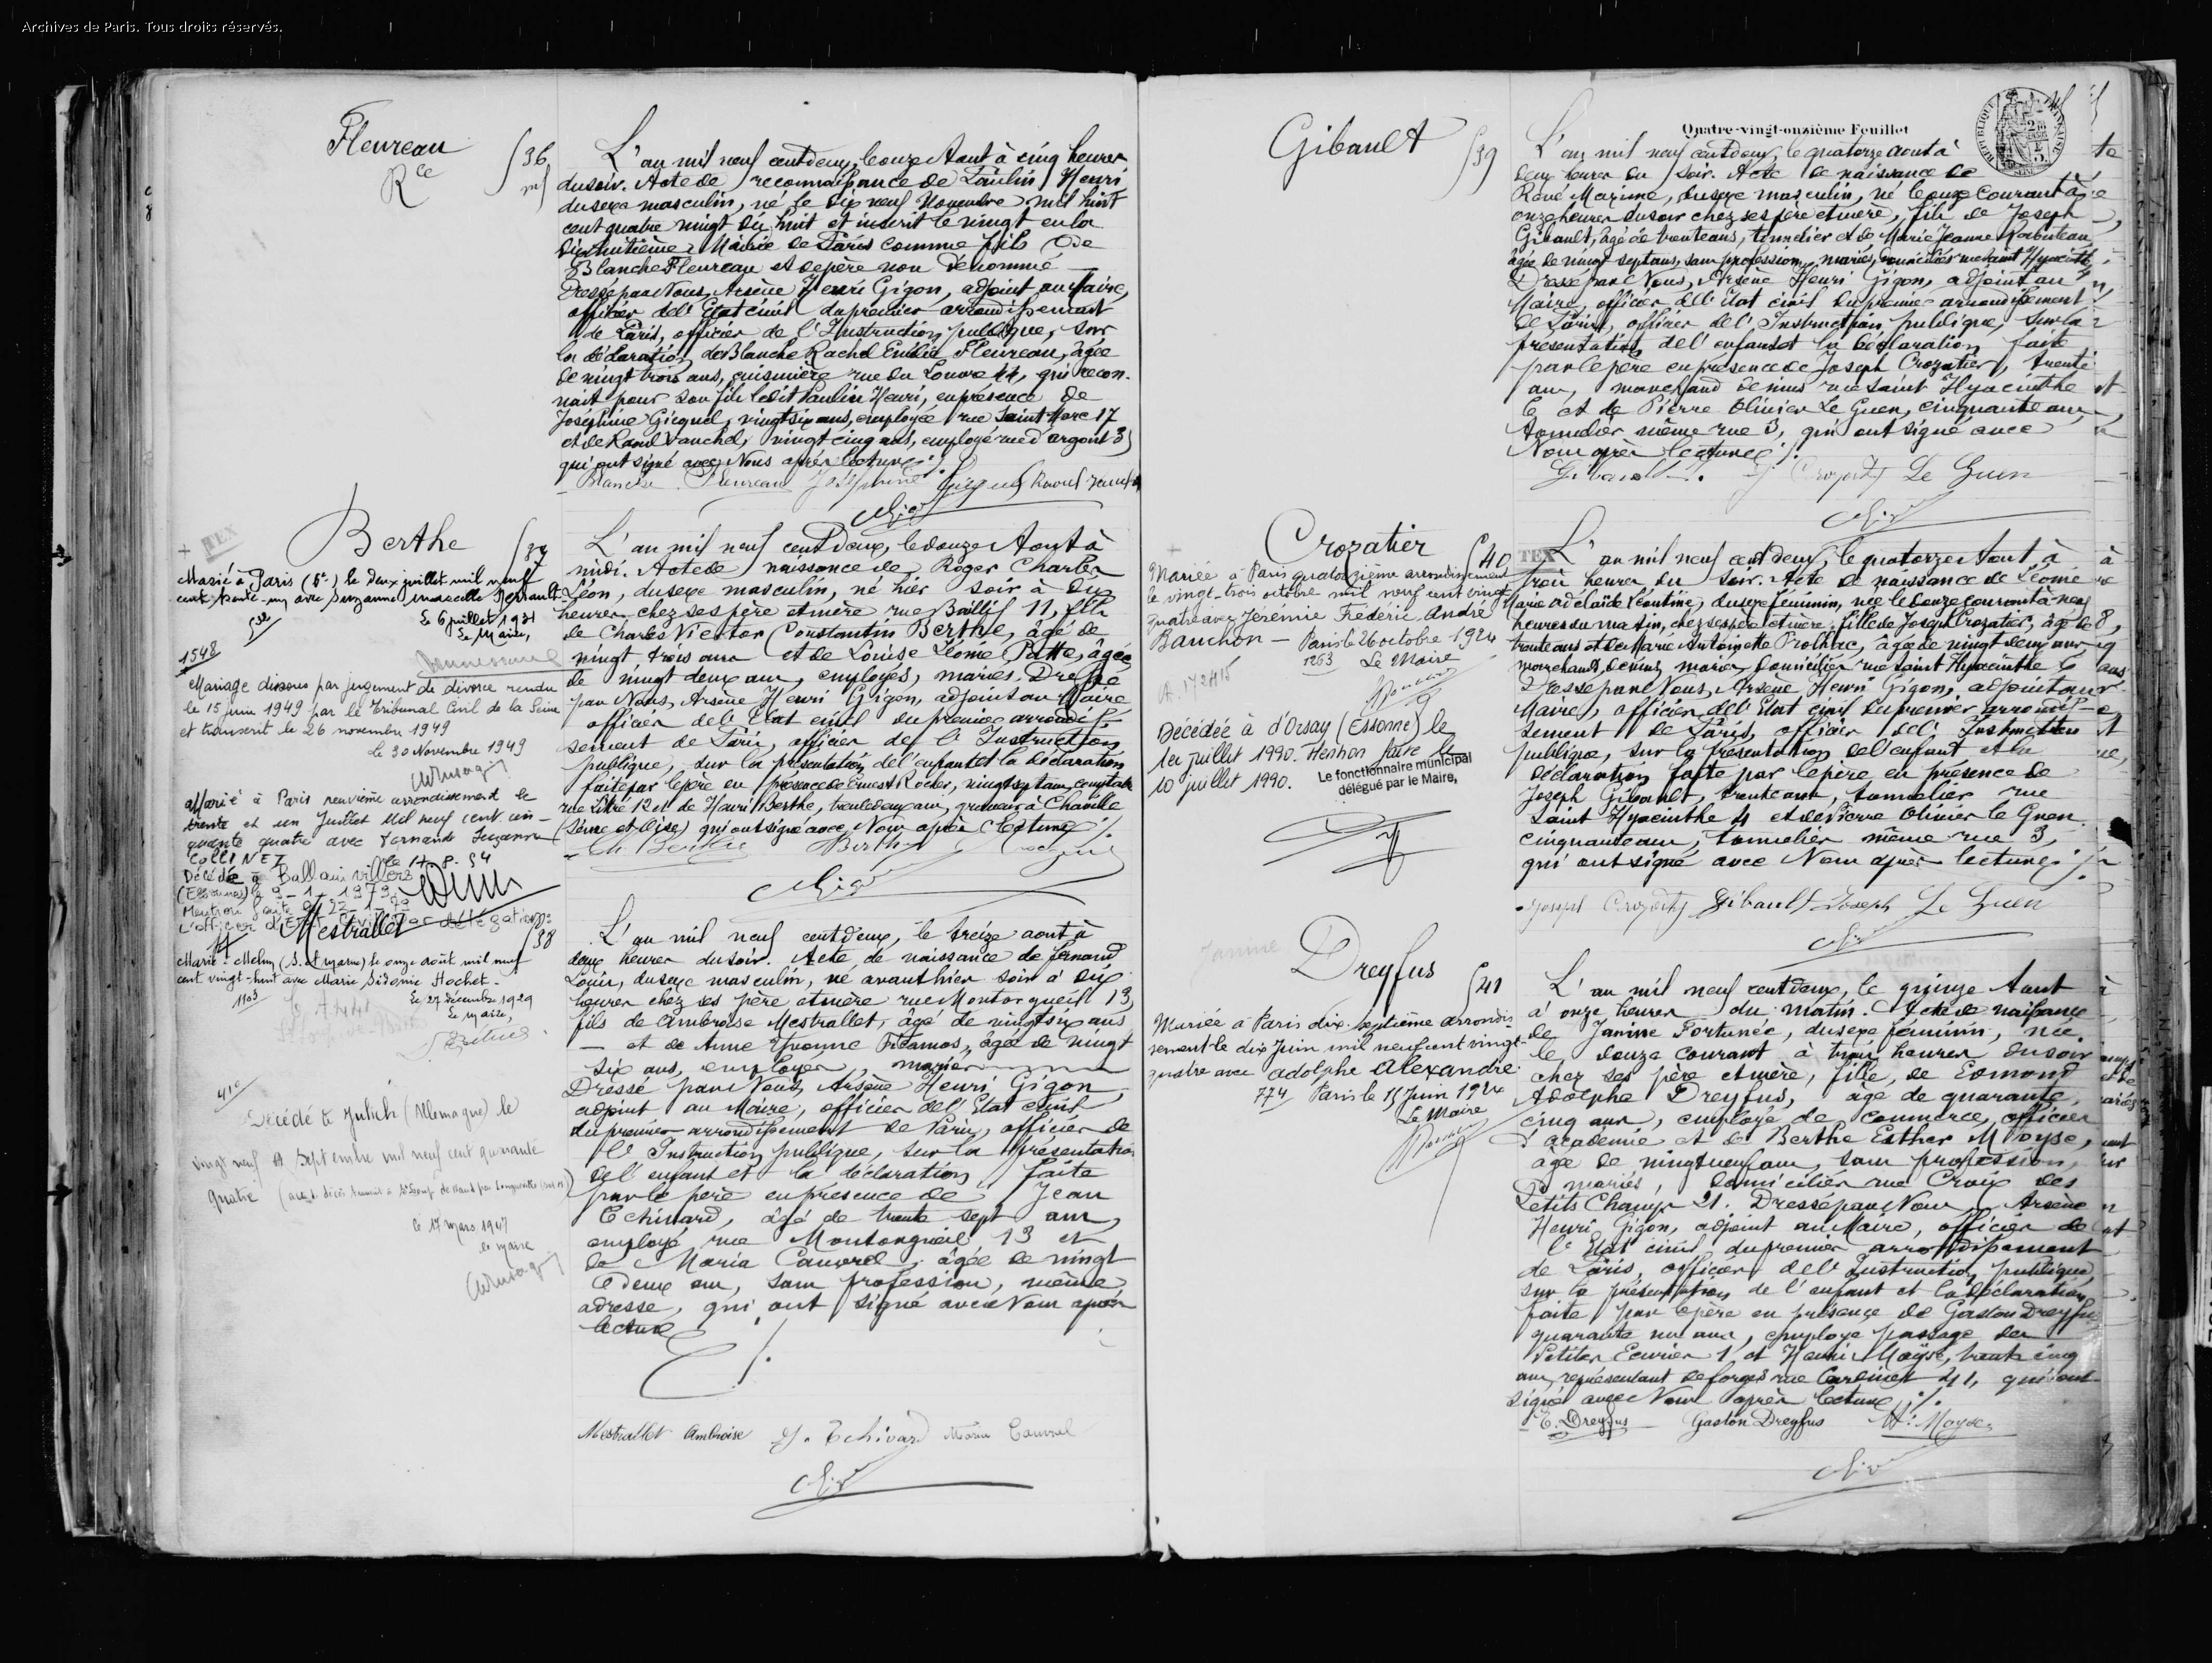 Archives de Paris. Tous droits réservés.
Fleureau
Rce
536
L'an mil neuf cent deux, le onze Aout à cinq heures
du soir. Acte de reconnaissance de Paulin Henri
du sexe masculin, né le dix neuf Novembre mil huit
cent quatre vingt dix huit et inscrit le vingt en la
dix huitième Mairie de Paris comme fils de
Blanche Fleureau et de père non dénommé
Dressé par Nous, Arsène Henri Gigon, adjoint au Maire,
officier de l'Etat civil du premier arrondissement
de Paris, officier de l'Instruction publique, sur
la déclaration de Blanche Rachel Emilie Fleureau, âgée
de vingt trois ans, cuisinière rue du Louvre 44, qui recon-
nait pour son fils ledit Paulin Henri, en présence de
Joséphine Gicquel, vingt six ans, employée rue Saint Marc 17
et de Raoul Vauchel, vingt cinq ans, employé rue d'argout 3
qui ont signé avec Nous après lecture ./.
Blanche Fleureau Joséphine Gicquel Raoul
TEX
Berthe
537
Marié à Paris (5e) le deux juillet mil neuf
cent trente-un avec Suzanne Marcelle
Le 6 juillet 1931
Le Maire,
1548
Mariage dissous par jugement de divorce rendu
le 15 juin 1949 par le Tribunal Civil de la Seine
et transcrit le 26 novembre 1949
le 30 Novembre 1949
Marié à Paris neuvième arrondissement le
trente et un Juillet Mil neuf cent cin-
quante quatre avec Fernande Suzanne
COLLINET
le 17-8-54
Décédé à Ballainvilliers
(Essonne) le 9-1-1979
Mention faite le 22-1-79
L'officier d'Etat Civil par délégation
L'an mil neuf cent deux, le douze Aout à
midi. Acte de naissance de Roger Charles
Léon, du sexe masculin, né hier soir à dix
heures chez ses père et mère rue Baillif 11, fils
de Charles Victor Constantin Berthe, âgé de
vingt trois ans et de Louise Léonie Patte, âgée
de vingt deux ans, employés, mariés. Dressé
par Nous, Arsène Henri Gigon, adjoint au Maire
officier de l'Etat civil du premier arrondis-
sement de Paris, officier de l'Instruction
publique, sur la présentation de l'enfant et la déclaration
faite par le père en présence de Ernest Rocher, vingt sept ans, comptable
rue Littré 12 et de Henri Berthe, trente deux ans, graveur à Chaville
(Seine et Oise) qui ont signé avec Nous après lecture ./.
Berthe
Mestrallet
538
Marié à Melun (S. et Marne) le onze août mil neuf
cent vingt-huit avec Marie Sidonie Hochet.
1103
Le 27 décembre 1929
Le Maire,
Décédé à Julich (Allemagne) le
vingt neuf Septembre mil neuf cent quarante
quatre
le 17 mars 1947
le maire
L'an mil neuf cent deux, le treize aout à
deux heures du soir. Acte de naissance de Fernand
Louis, du sexe masculin, né avant hier soir à dix
heures chez ses père et mère rue Montorgueil 13,
fils de Ambroise Mestrallet, âgé de vingt six ans
— et de Anne Yvonne Tréamos, âgée de vingt
six ans, employés, mariés
Dressé par Nous, Arsène Henri Gigon,
adjoint au Maire, officier de l'Etat civil
du premier arrondissement de Paris, officier de
l'Instruction publique, sur la présentation
de l'enfant et la déclaration faite
par le père en présence de Jean
Echivard, âgé de trente sept ans,
employé rue Montorgueil 13 et
de Maria Cauvrel, âgée de vingt
deux ans, sans profession, même
adresse, qui ont signé avec Nous après
lecture ./.
Mestrallet Ambroise J. Echivard Maria Cauvrel
Gibault
539
Quatre-vingt-onzième Feuillet
RÉPUBLIQUE FRANÇAISE
L'an mil neuf cent deux, le quatorze aout à
deux heures du soir. Acte de naissance de
René Maxime, du sexe masculin, né le onze courant à
onze heures du soir chez ses père et mère, fils de Joseph
Gibault, âgé de trente ans, tonnelier et de Marie Jeanne Rabuteau
âgée de vingt sept ans, sans profession, mariés, domiciliés rue Saint Hyacinthe
Dressé par Nous, Arsène Henri Gigon, adjoint au
Maire, officier de l'Etat civil du premier arrondissement
de Paris, officier de l'Instruction publique, sur la
présentation de l'enfant et la déclaration faite
par le père en présence de Joseph Crozatier, trente
ans, marchand de vins rue Saint Hyacinthe
6 et de Pierre Olivier Le Guen, cinquante ans,
tonnelier même rue 3, qui ont signé avec
Nous après lecture ./.
Gibault J. Crozatier Le Guen
Crozatier
540
Mariée à Paris quatorzième arrondissement
le vingt-trois octobre mil neuf cent vingt
quatre avec Jérémie Frédéric André
Bauchon — Paris le 26 octobre 1924
1263 Le Maire
Décédée à d'Orsay (Essonne) le
1er juillet 1990. Mention faite le
10 juillet 1990.
Le fonctionnaire municipal
délégué par le Maire,
TEX
L'an mil neuf cent deux, le quatorze Aout à
trois heures du soir. Acte de naissance de Léonie
Marie Adelaïde Léontine, du sexe féminin, née le douze courant à neuf
heures du matin, chez ses père et mère, fille de Joseph Crozatier, âgé de
trente ans et de Marie Antoinette Prolhac, âgée de vingt deux ans
marchands de vins, mariés, domiciliés rue Saint Hyacinthe 6
Dressé par Nous, Arsène Henri Gigon, adjoint au
Maire, officier de l'Etat civil du premier arrondis-
sement de Paris, officier de l'Instruction
publique, sur la présentation de l'enfant et la
déclaration faite par le père en présence de
Joseph Gibault, trente ans, tonnelier rue
Saint Hyacinthe 4 et de Pierre Olivier le Guen
cinquante ans, tonnelier même rue 3,
qui ont signé avec Nous après lecture ./.
Joseph Crozatier Gibault Joseph Le Guen
Janine
Dreyfus
541
Mariée à Paris dix-septième arrondis-
sement le dix Juin mil neuf cent vingt-
quatre avec Adolphe Alexandre
774 Paris le 15 Juin 1924
Le Maire
L'an mil neuf cent deux, le quinze Aout
à onze heures du matin. Acte de naissance
de Janine Fortunée, du sexe féminin, née
le douze courant à trois heures du soir
chez ses père et mère, fille de Edmond
Adolphe Dreyfus, âgé de quarante
cinq ans, employé de commerce, officier
d'académie et de Berthe Esther Moyse,
âgée de vingt neuf ans, sans profession,
mariés, domiciliés rue Croix des
Petits Champs 21. Dressé par Nous, Arsène
Henri Gigon, adjoint au Maire, officier de
l'Etat civil du premier arrondissement
de Paris, officier de l'Instruction publique,
sur la présentation de l'enfant et la déclaration
faite par le père en présence de Gaston Dreyfus
quarante un ans, employé passage des
Petites Ecuries 1 et Henri Moyse, trente cinq
ans, représentant de forges rue Cardinet 41, qui ont
signé avec Nous après lecture ./.
E. Dreyfus Gaston Dreyfus H. Moyse